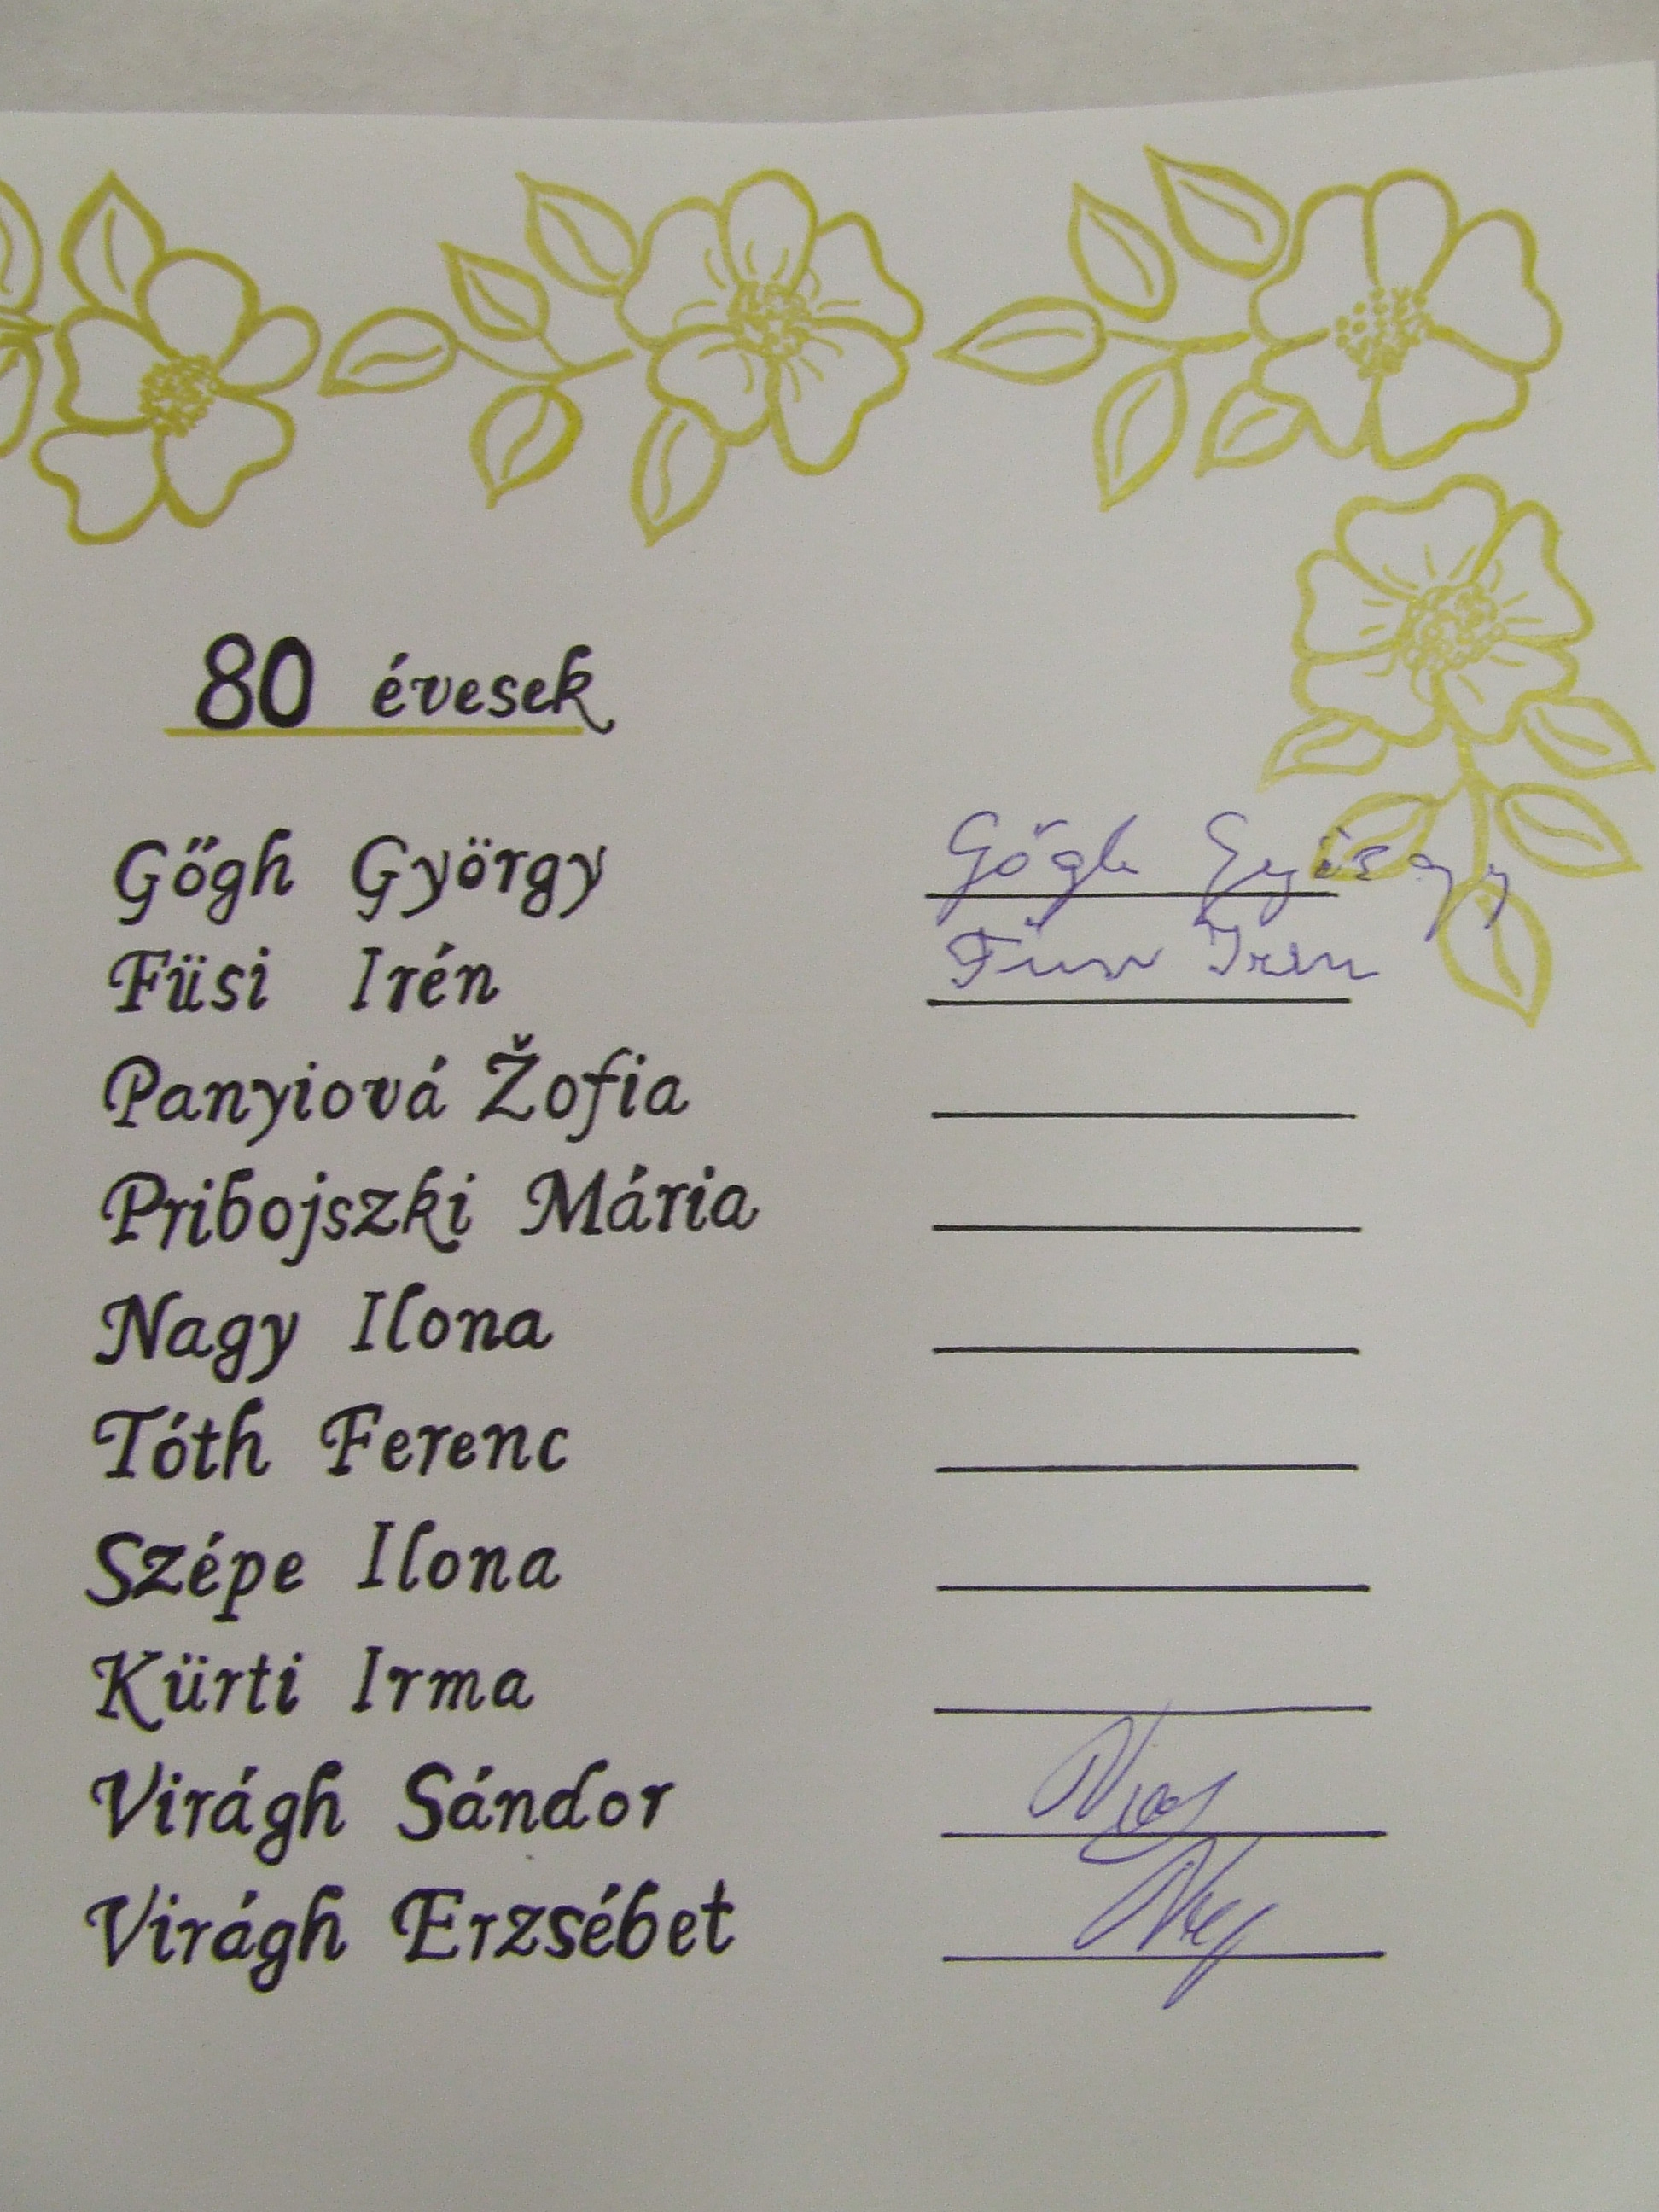 80 évesek
Gőgh György Gőgh György
Füsi Irén Füsi Iren
Panyiová Žofia
Pribojszki Mária
Nagy Ilona
Tóth Ferenc
Szépe Ilona
Kürti Irma
Virágh Sándor
Virágh Erzsébet